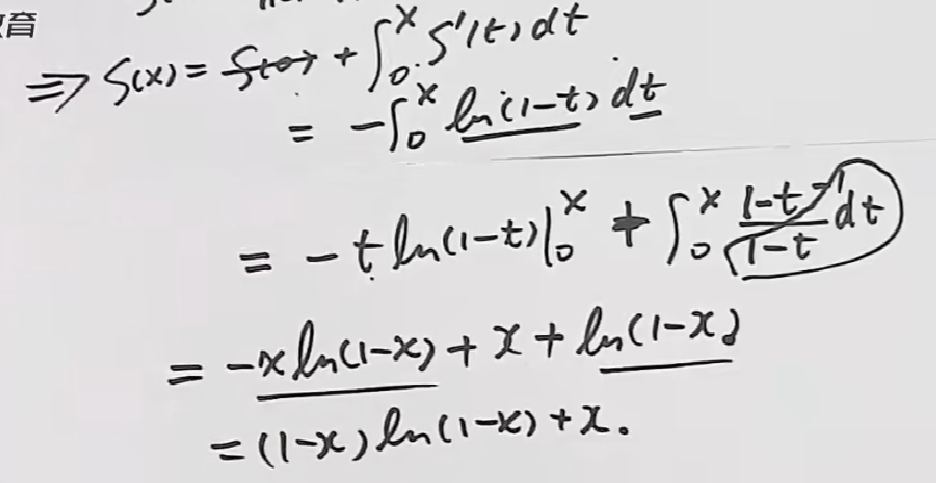 育
⇒ S(x) = S(0) + ∫₀ˣ S'(t) dt
= -∫₀ˣ ln(1-t) dt
= -t ln(1-t)|₀ˣ + ∫₀ˣ (1-t-1)/(1-t) dt
= -x ln(1-x) + x + ln(1-x)
= (1-x) ln(1-x) + x.